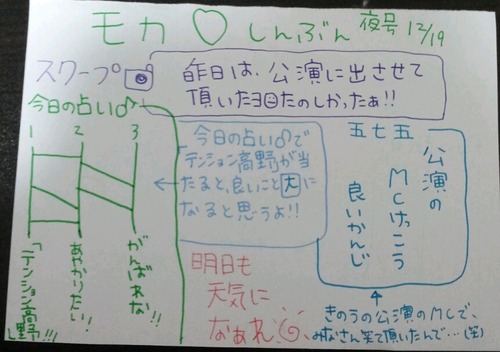 モカ♡しんぶん 夜号 12/19
スクープ
昨日は、公演に出させて
頂いた3回たのしかったぁ!!
今日の占い♂
1 2 3
「テンション高野」!!!
あやかりたい!
がんばれな!!
今日の占い♂で
テンション高野が当
たると、良いこと大に
なると思うよ!!
五七五
公演の
MCけっこう
良いかんじ
きのうの公演のMCで、
みなさん笑て頂いたんで…(笑)
明日も
天気に
なぁれ